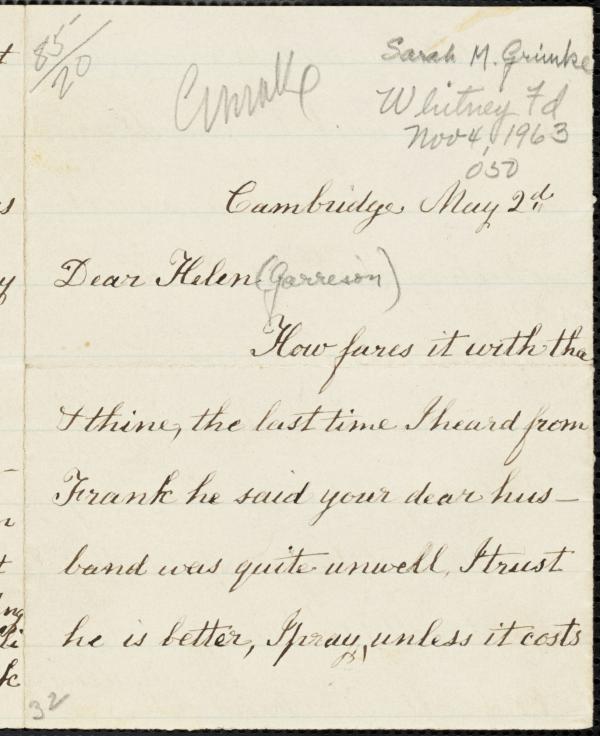 85/20
Sarah M. Grimke
Whitney Fd
Nov 4, 1963
050
Cambridge May 2d
Dear Helen (Garreson)
How fares it with the
& thine, the last time I heard from
Frank he said your dear hus-
band was quite unwell, I trust
he is better, I pray, unless it costs
32